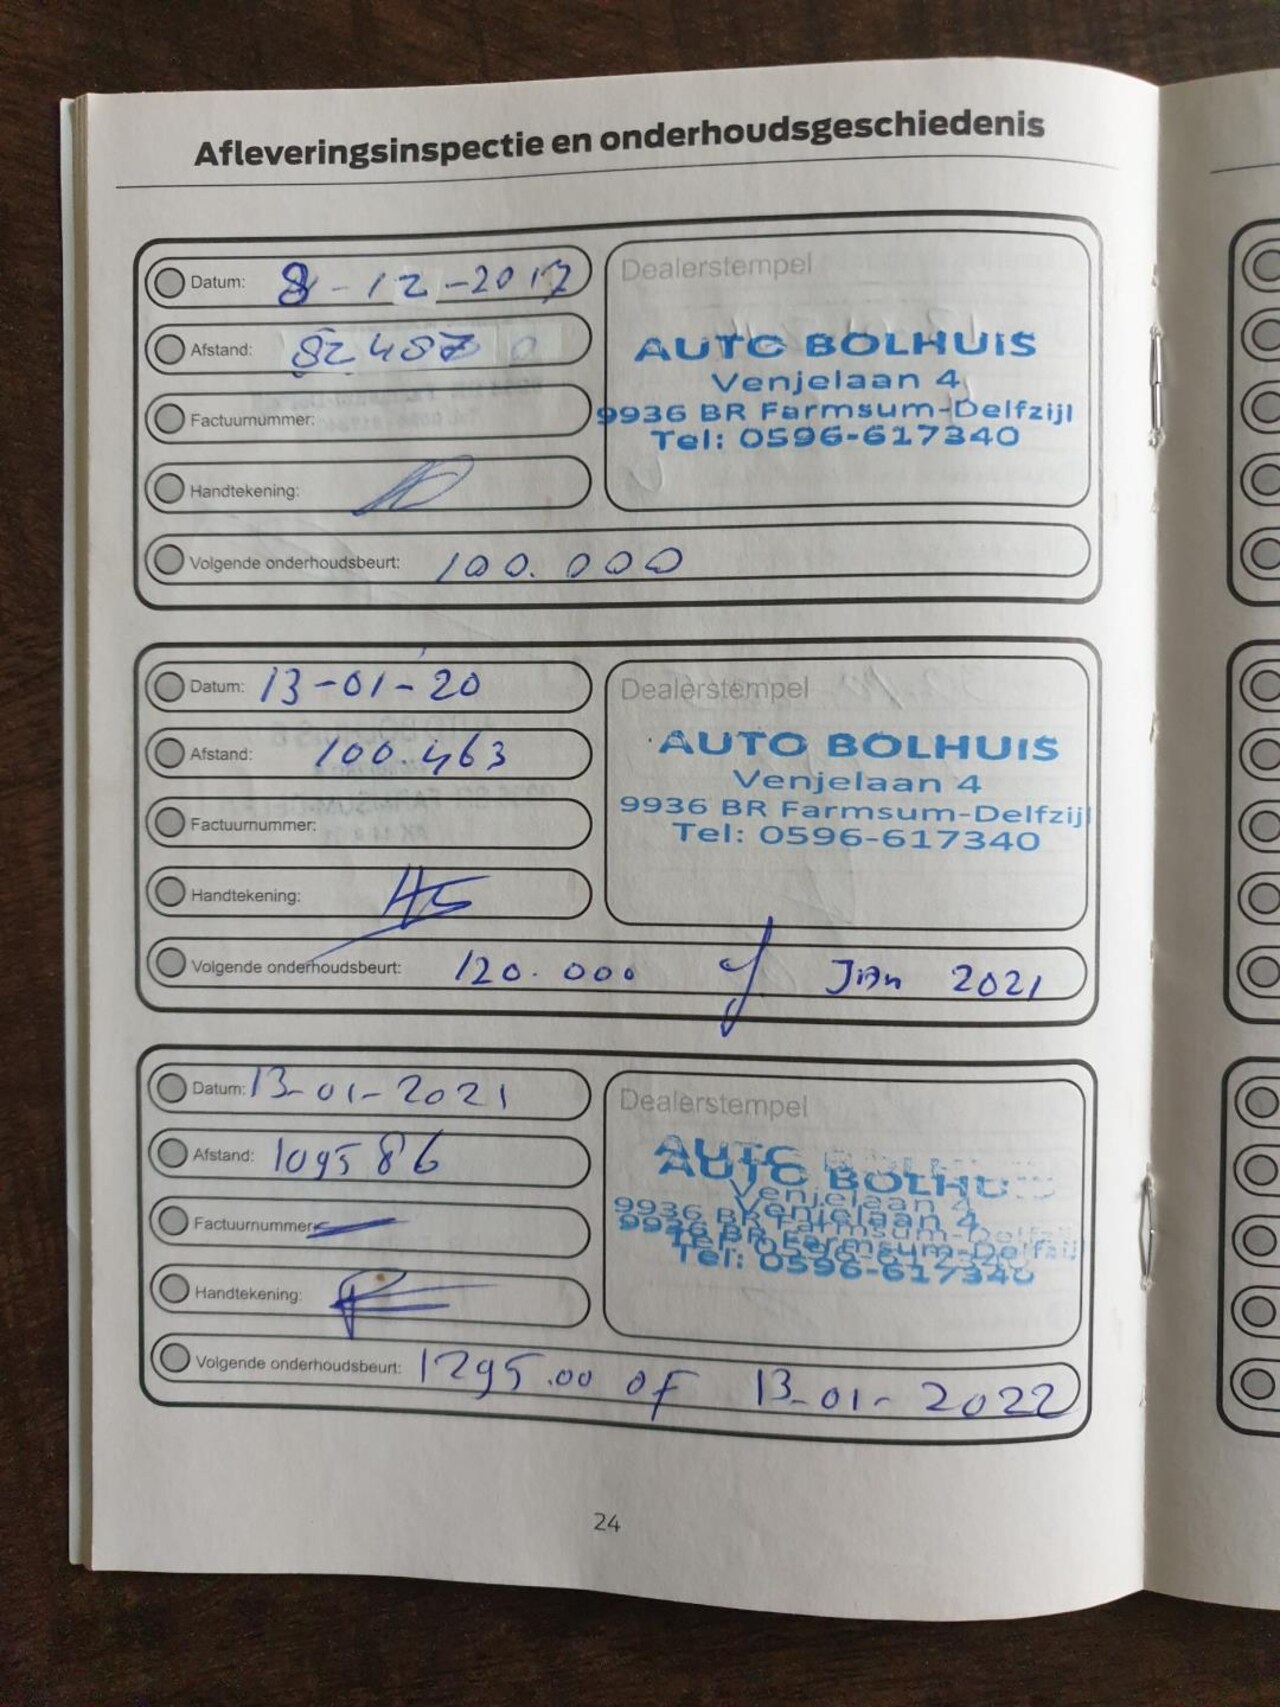 Afleveringsinspectie en onderhoudsgeschiedenis
Datum: 8-12-2017
Afstand: 82487
Factuurnummer:
Handtekening:
Volgende onderhoudsbeurt: 100.000
Dealerstempel
AUTO BOLHUIS
Venjelaan 4
9936 BR Farmsum-Delfzijl
Tel: 0596-617340
Datum: 13-01-20
Afstand: 100.463
Factuurnummer:
Handtekening:
Volgende onderhoudsbeurt: 120.000 of Jan 2021
Dealerstempel
AUTO BOLHUIS
Venjelaan 4
9936 BR Farmsum-Delfzijl
Tel: 0596-617340
Datum: 13-01-2021
Afstand: 109586
Factuurnummer:
Handtekening:
Volgende onderhoudsbeurt: 1295.00 of 13-01-2022
Dealerstempel
AUTO BOLHU
Venjelaan 4
9936 BR Farmsum-Delfzijl
Tel: 0596-617340
24